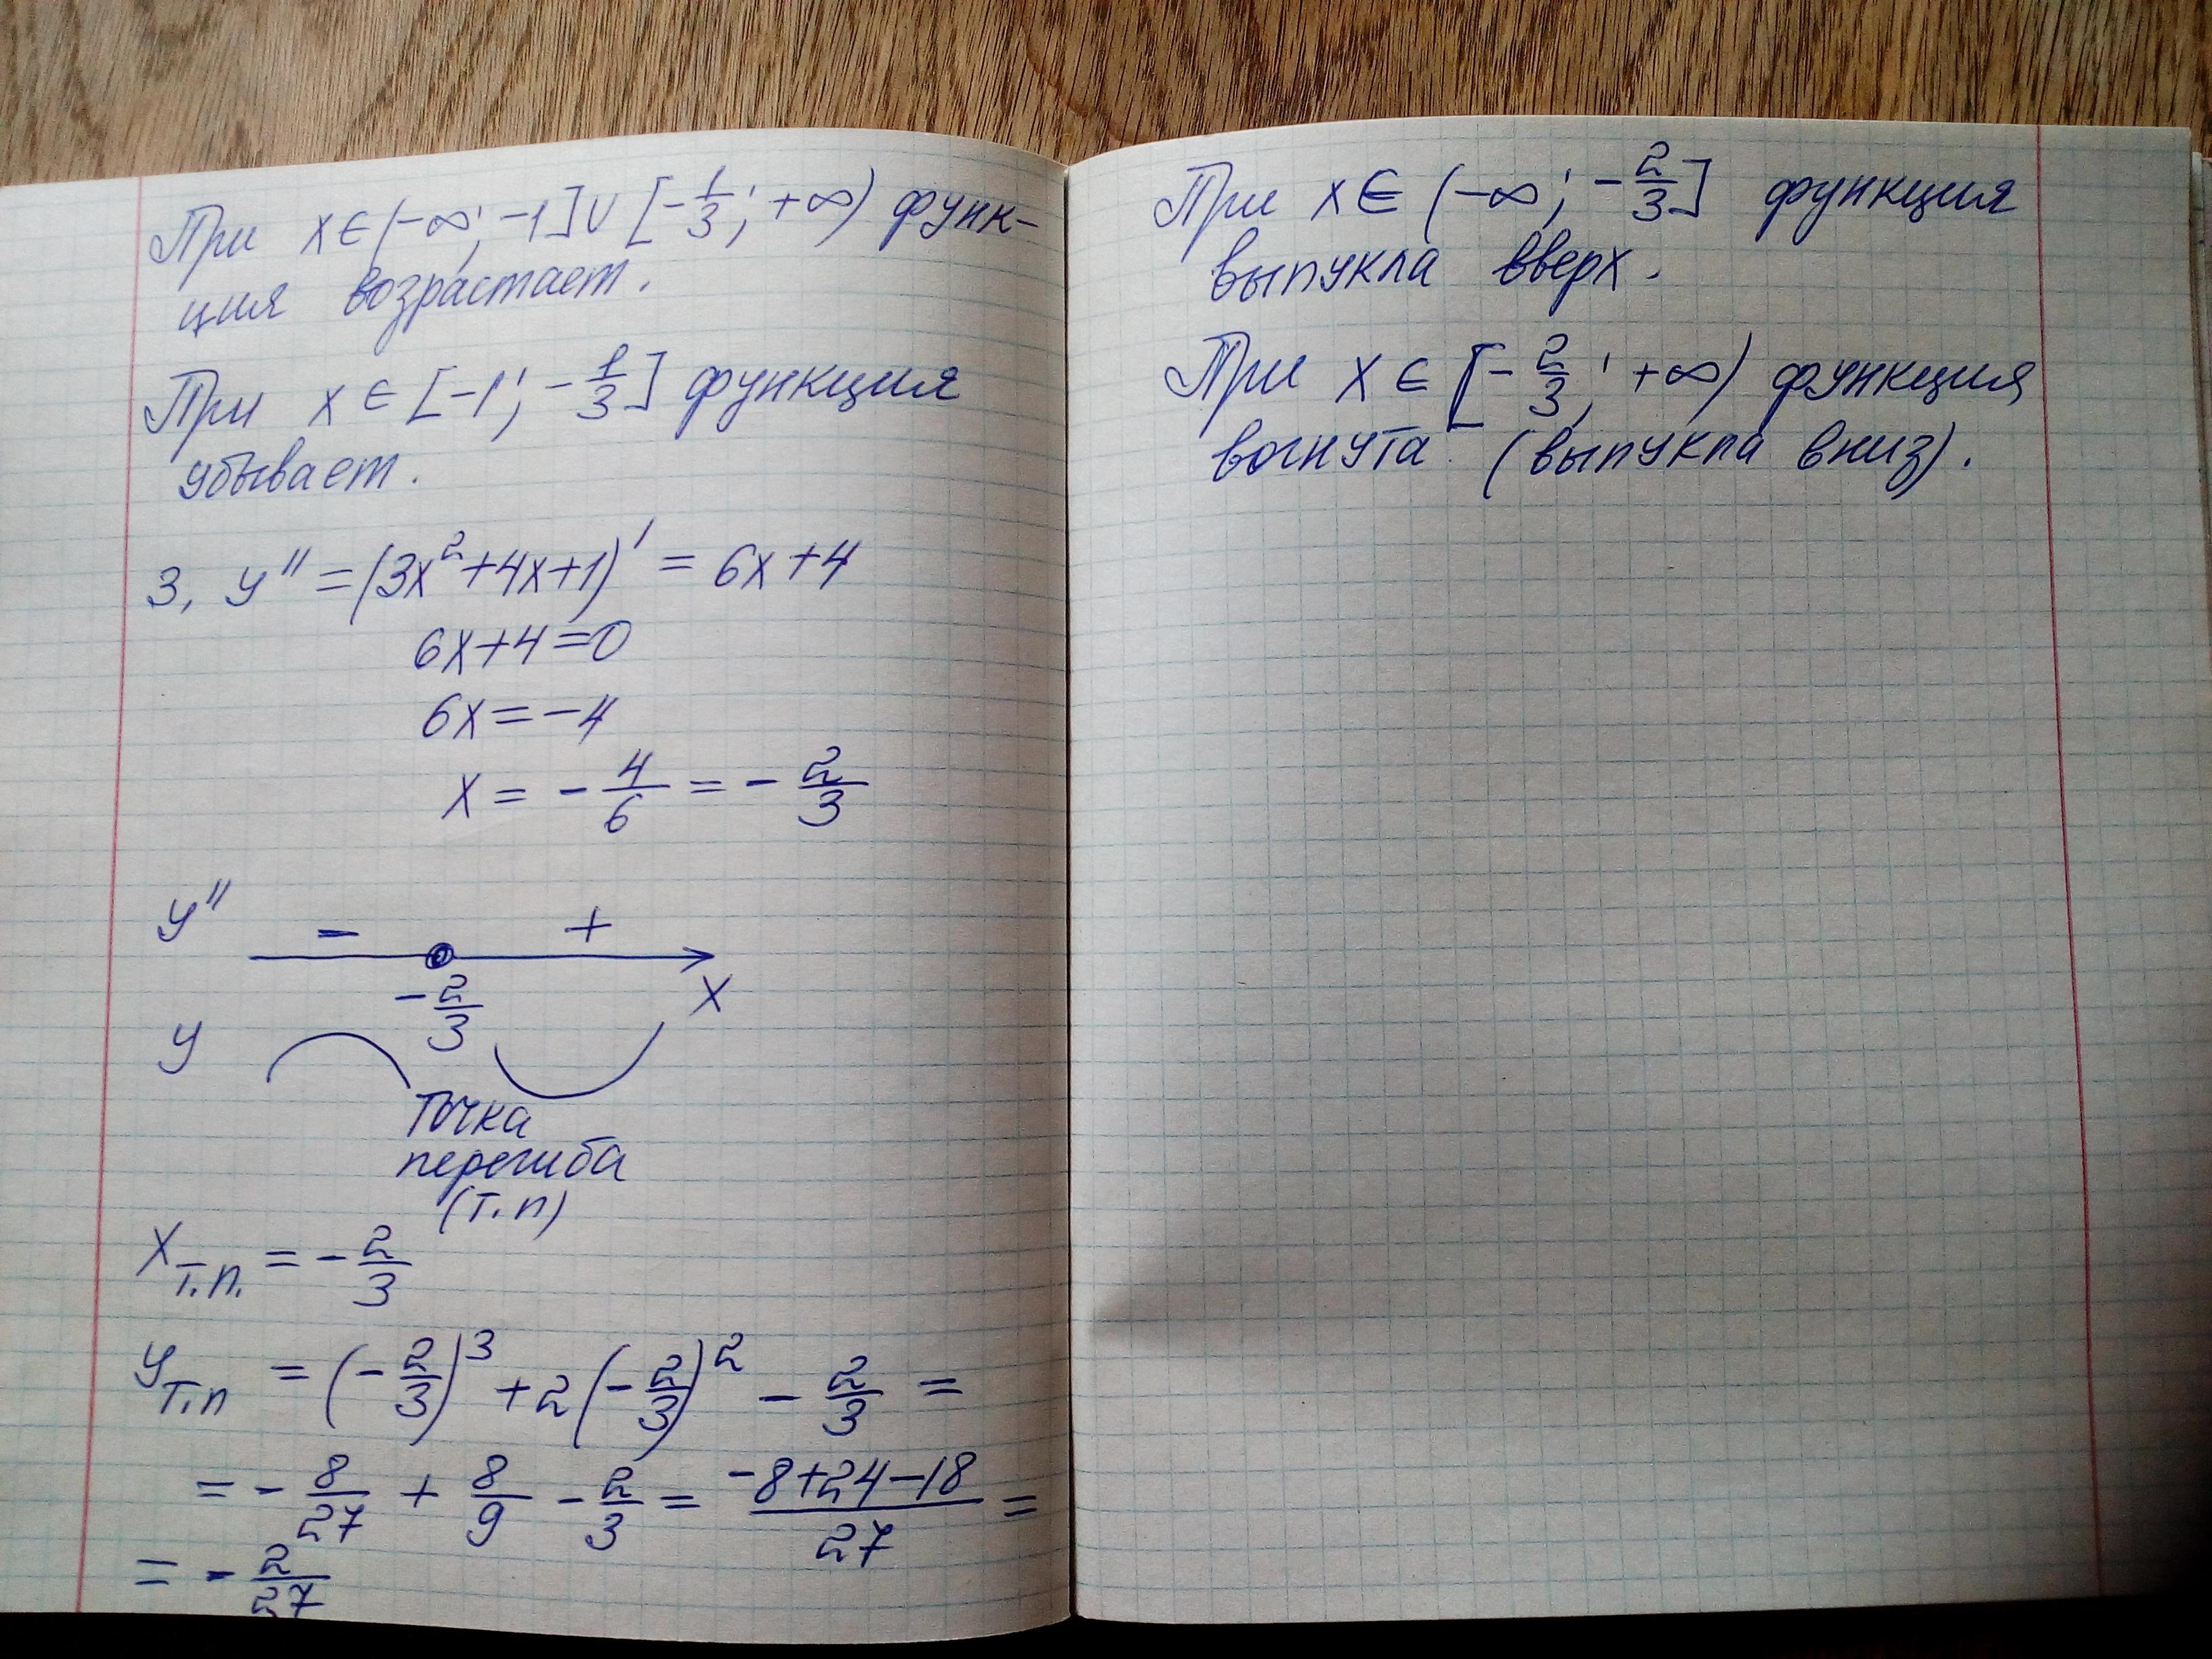 При x∈(-∞; -1]∪[-1/3; +∞) функ-
ция возрастает.
При x∈[-1; -1/3] функция
убывает.
3, y'' = (3x²+4x+1)' = 6x+4
6x+4=0
6x=-4
x = -4/6 = -2/3
y'' - +
-2/3 x
y
Точка
перегиба
(т.п)
x т.п. = -2/3
y т.п = (-2/3)³ + 2(-2/3)² - 2/3 =
= -8/27 + 8/9 - 2/3 = (-8+24-18)/27 =
= -2/27
При x∈(-∞; -2/3] функция
выпукла вверх.
При x∈[-2/3; +∞) функция
вогнута (выпукла вниз).